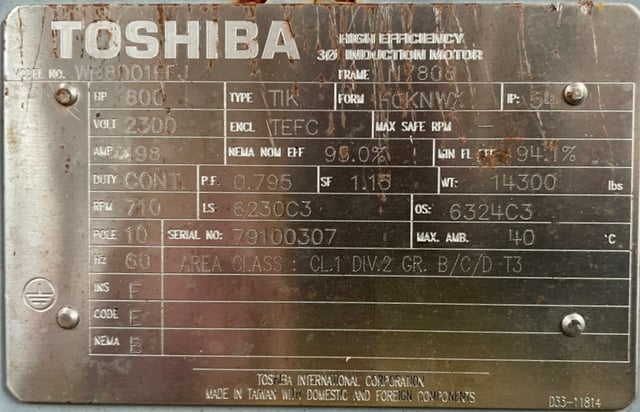 TOSHIBA
HIGH EFFICIENCY
3Ø INDUCTION MOTOR
MODEL NO. FRAME
HP 800 TYPE TIK FORM IP: 54
VOLT 2300 ENCL TEFC MAX SAFE RPM —
AMP 198 NEMA NOM EFF 95.0% MIN FL EFF 94.1%
DUTY CONT. P.F. 0.795 SF 1.15 WT: 14300 lbs
RPM 710 LS: 6230C3 OS: 6324C3
POLE 10 SERIAL NO: 79100307 MAX. AMB. 40 °C
Hz 60 AREA CLASS : CL.1 DIV.2 GR. B/C/D T3
INS F
CODE
NEMA B
TOSHIBA INTERNATIONAL CORPORATION
MADE IN TAIWAN WITH DOMESTIC AND FOREIGN COMPONENTS
D33-11814